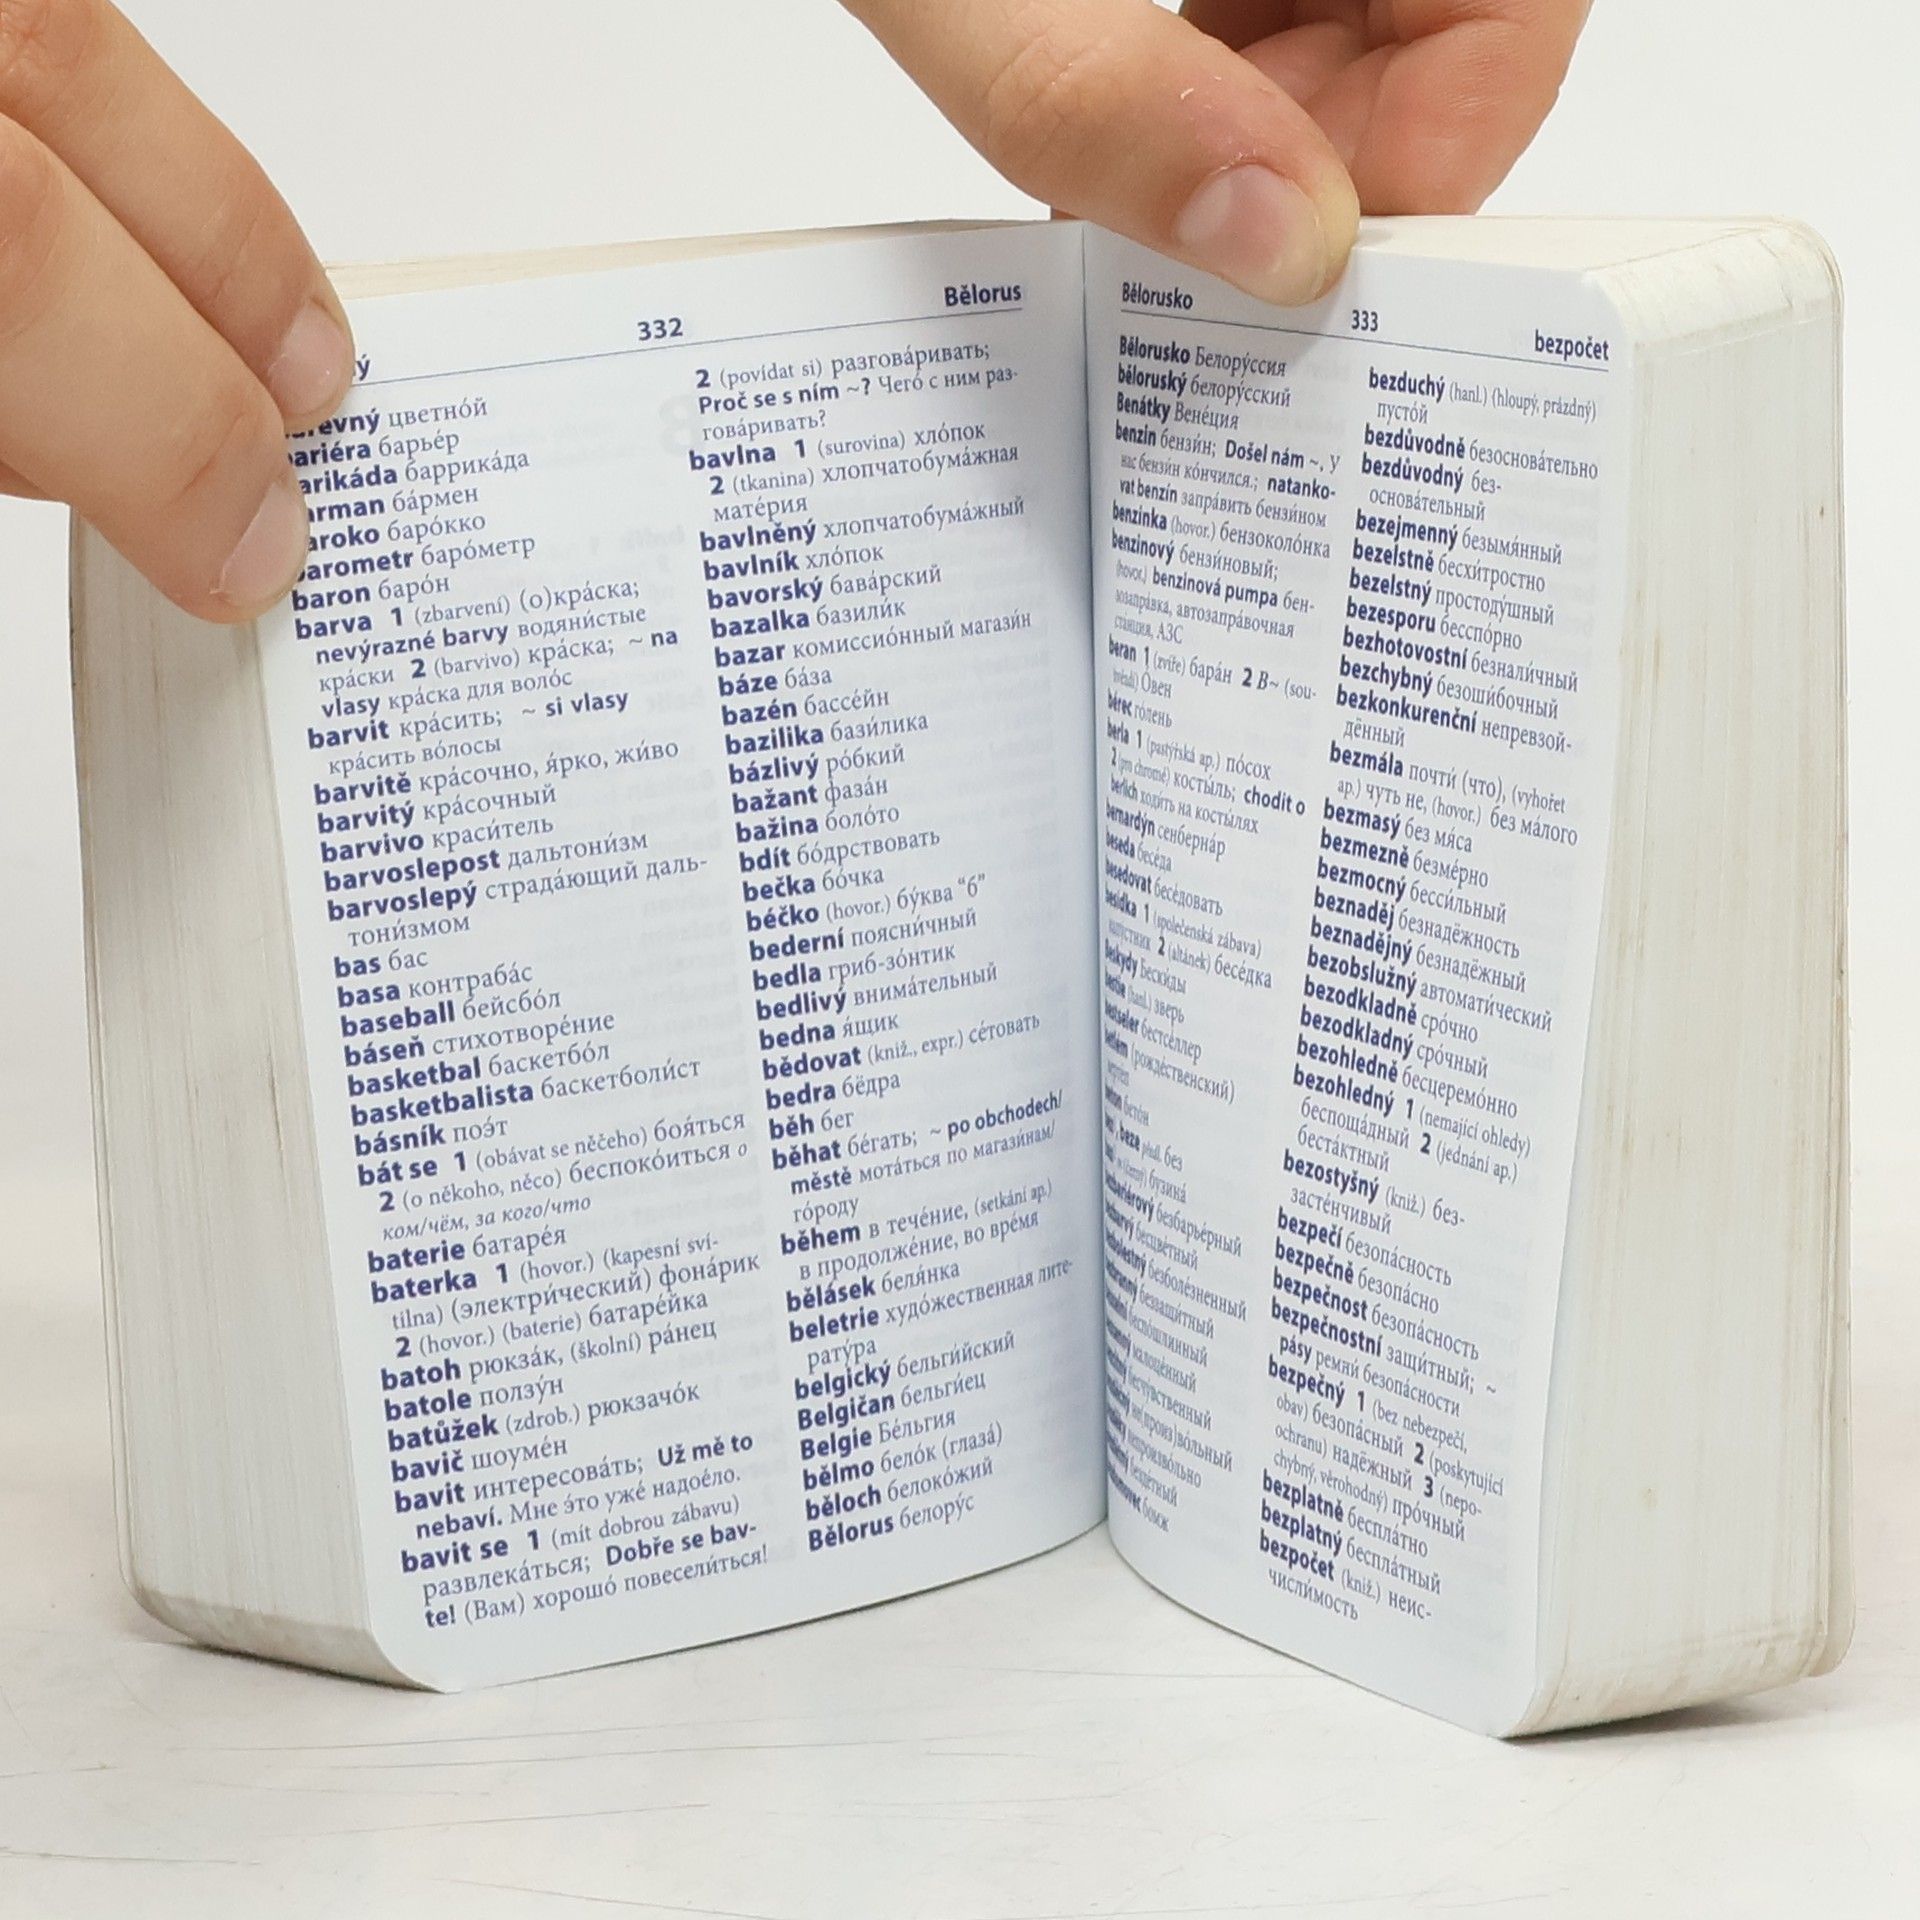 332
Bělorus
цветно́й
барье́р
баррика́да
ба́рмен
баро́кко
barometr баро́метр
baron баро́н
barva 1 (zbarvení) (о)кра́ска;
nevýrazné barvy водяни́стые
кра́ски 2 (barvivo) кра́ска; ~ na
vlasy кра́ска для воло́с
barvit кра́сить; ~ si vlasy
кра́сить во́лосы
barvitě кра́сочно, я́рко, жи́во
barvitý кра́сочный
barvivo краси́тель
barvoslepost дальтони́зм
barvoslepý страда́ющий даль-
тони́змом
bas бас
basa контраба́с
baseball бейсбо́л
báseň стихотворе́ние
basketbal баскетбо́л
basketbalista баскетболи́ст
básník поэ́т
bát se 1 (obávat se něčeho) боя́ться
2 (o někoho, něco) беспоко́иться о
ком/чём, за кого/что
baterie батаре́я
baterka 1 (hovor.) (kapesní sví-
tilna) (электри́ческий) фона́рик
2 (hovor.) (baterie) батаре́йка
batoh рюкза́к, (školní) ра́нец
batole ползу́н
batůžek (zdrob.) рюкзачо́к
bavič шоуме́н
bavit интересова́ть; Už mě to
nebaví. Мне э́то уже́ надое́ло.
bavit se 1 (mít dobrou zábavu)
развлека́ться; Dobře se bav-
te! (Вам) хорошо́ повесели́ться!
2 (povídat si) разгова́ривать;
Proč se s ním ~? Чего́ с ним раз-
гова́ривать?
bavlna 1 (surovina) хло́пок
2 (tkanina) хлопчатобума́жная
мате́рия
bavlněný хлопчатобума́жный
bavlník хло́пок
bavorský бава́рский
bazalka базили́к
bazar комиссио́нный магази́н
báze ба́за
bazén бассе́йн
bazilika бази́лика
bázlivý ро́бкий
bažant фаза́н
bažina боло́то
bdít бо́дрствовать
bečka бо́чка
béčko (hovor.) бу́ква “б”
bederní поясни́чный
bedla гриб-зо́нтик
bedlivý внима́тельный
bedna я́щик
bědovat (kniž., expr.) се́товать
bedra бёдра
běh бег
běhat бе́гать; ~ po obchodech/
městě мота́ться по магази́нам/
го́роду
během в тече́ние, (setkání ap.)
в продолже́ние, во вре́мя
bělásek беля́нка
beletrie худо́жественная лите-
рату́ра
belgický бельги́йский
Belgičan бельги́ец
Belgie Бе́льгия
bělmo бело́к (глаза́)
běloch белоко́жий
Bělorus белору́с
Bělorusko
333
bezpočet
Bělorusko Белору́ссия
běloruský белору́сский
Benátky Вене́ция
benzin бензи́н; Došel nám ~, у
нас бензи́н ко́нчился.; natanko-
vat benzín запра́вить бензи́ном
benzinka (hovor.) бензоколо́нка
benzinový бензи́новый;
(hovor.) benzinová pumpa бен-
возапра́вка, автозапра́вочная
ста́нция, АЗС
beran 1 (zvíře) бара́н 2 B~ (sou-
hvězdí) Ове́н
bérec го́лень
berla 1 (pastýřská ap.) по́сох
2 (pro chromé) косты́ль; chodit o
berlích ходи́ть на костыля́х
bernardýn сенберна́р
beseda бесе́да
besedovat бесе́довать
besídka 1 (společenská zábava)
2 (altánek) бесе́дка
Beskydy Бески́ды
bestie (hanl.) зверь
bestseler бестсе́ллер
betlém (рожде́ственский)
beton бето́н
bez, beze předl. без
бузина́
безбарье́рный
бесцве́тный
безболе́зненный
беззащи́тный
беспо́шлинный
малоце́нный
бесчу́вственный
не(произ)во́льный
непроизво́льно
бомж
bezduchý (hanl.) (hloupý, prázdný)
пусто́й
bezdůvodně безоснова́тельно
bezdůvodný без-
основа́тельный
bezejmenný безымя́нный
bezelstně бесхи́тростно
bezelstný простоду́шный
bezesporu бесспо́рно
bezhotovostní безнали́чный
bezchybný безоши́бочный
bezkonkurenční непревзой-
дённый
bezmála почти́ (что), (vyhořet
ap.) чуть не, (hovor.) без ма́лого
bezmasý без мя́са
bezmezně безме́рно
bezmocný бесси́льный
beznaděj безнадёжность
beznadějný безнадёжный
bezobslužný автомати́ческий
bezodkladně сро́чно
bezodkladný сро́чный
bezohledně бесцеремо́нно
bezohledný 1 (nemající ohledy)
беспоща́дный 2 (jednání ap.)
беста́ктный
bezostyšný (kniž.) без-
засте́нчивый
bezpečí безопа́сность
bezpečně безопа́сно
bezpečnost безопа́сность
bezpečnostní защи́тный; ~
pásy ремни́ безопа́сности
bezpečný 1 (bez nebezpečí,
obav) безопа́сный 2 (poskytující
ochranu) надёжный 3 (nepo-
chybný, věrohodný) про́чный
bezplatně беспла́тно
bezplatný беспла́тный
bezpočet (kniž.) неис-
числи́мость